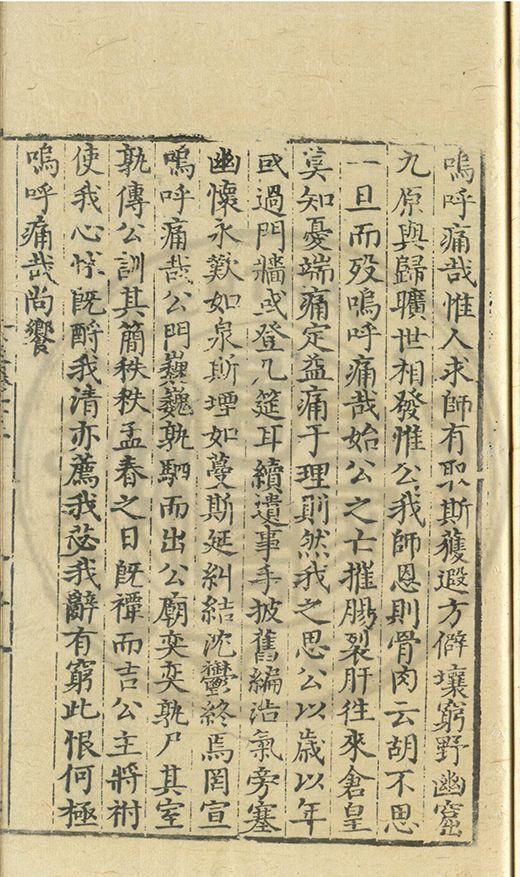 嗚呼痛哉惟人求師有聖斯獲遐方僻壤窮野幽窟
九原與歸曠世相發惟公我師恩則骨肉云胡不思
一旦而歿嗚呼痛哉始公之亡摧腸裂肝徃來倉皇
莫知憂端痛定益痛于理則然我之思公以歲以年
或過門牆或登几筵耳續遺事手披舊編浩氣旁塞
幽懷永歎如泉斯堙如蔓斯延糾結沈鬱終焉罔宣
嗚呼痛哉公門巍巍孰駟而出公廟奕奕孰尸其室
孰傳公訓其簡秩秩孟春之日旣禫而吉公主將祔
使我心怵旣酹我清亦薦我苾我辭有窮此恨何極
嗚呼痛哉尚饗